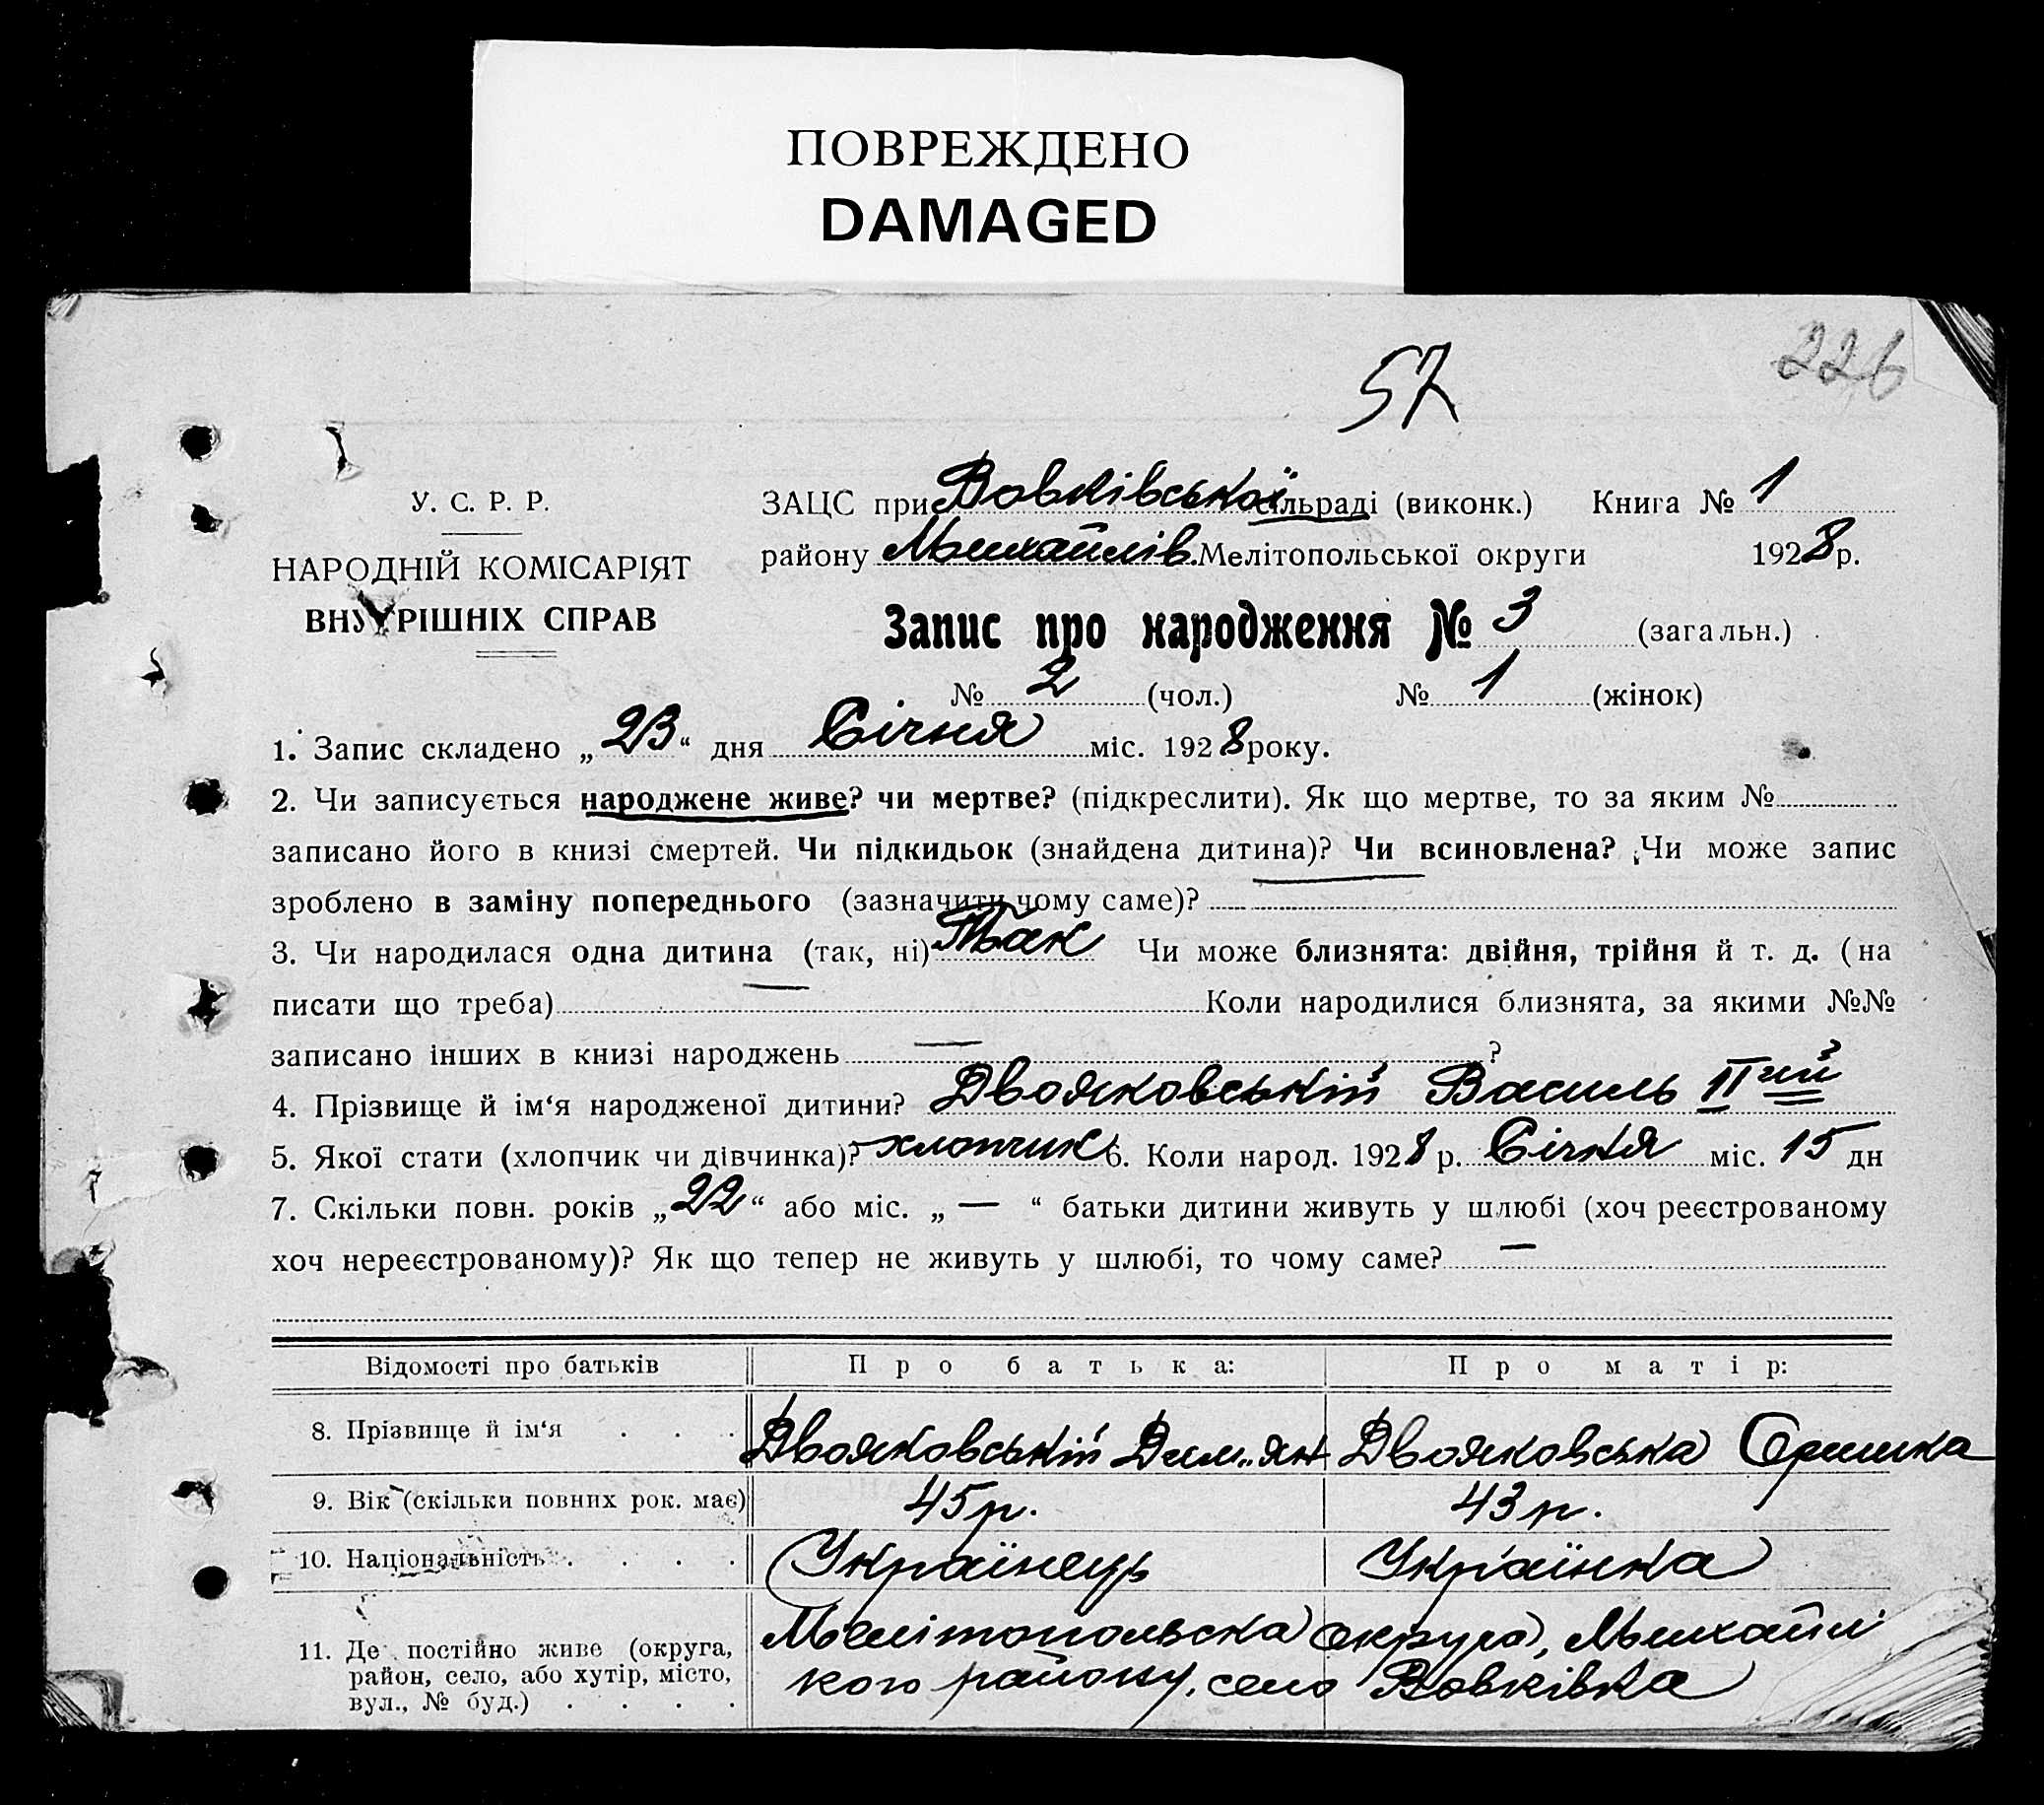 ПОВРЕЖДЕНО
DAMAGED
226
57
У. С. Р. Р.
НАРОДНІЙ КОМІСАРІЯТ
ВНУТРІШНІХ СПРАВ
ЗАЦС при Вовківської сільраді (виконк.) Книга № 1
району Михайлів. Мелітопольської округи 1928 р.
Запис про народження № 3 (загальн.)
№ 2 (чол.) № 1 (жінок)
1. Запис складено „23“ дня Січня міс. 1928 року.
2. Чи записується народжене живе? чи мертве? (підкреслити). Як що мертве, то за яким №
записано його в книзі смертей. Чи підкидьок (знайдена дитина)? Чи всиновлена? Чи може запис
зроблено в заміну попереднього (зазначити чому саме)? —
3. Чи народилася одна дитина (так, ні) Так Чи може близнята: двійня, трійня й т. д. (на
писати що треба) — Коли народилися близнята, за якими №№
записано інших в книзі народжень — ?
4. Прізвище й ім‘я народженої дитини? Двояковський Василь IIий
5. Якої стати (хлопчик чи дівчинка)? хлопчик 6. Коли народ. 1928 р. Січня міс. 15 дн
7. Скільки повн. років „22“ або міс. „—“ батьки дитини живуть у шлюбі (хоч реєстрованому
хоч нереєстрованому)? Як що тепер не живуть у шлюбі, то чому саме? —
Відомості про батьків Про батька: Про матір:
8. Прізвище й ім‘я . . . Двояковській Дем„ян Двояковська Оришка
9. Вік (скільки повних рок. має) 45 р. 43 р.
10. Національність . . . . Українець Українка
11. Де постійно живе (округа, Мелітопольска округа, Михайлі
район, село, або хутір, місто, кого району, село Вовківка
вул., № буд.) . . . .